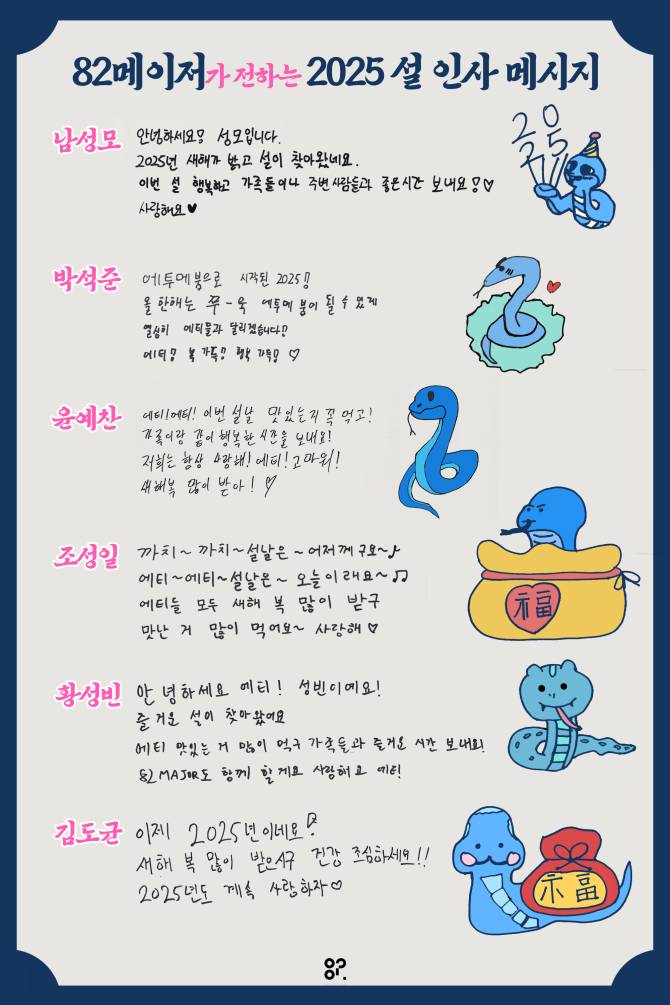 82메이저가 전하는 2025 설 인사 메시지
20
25
남성모
안녕하세요! 성모입니다.
2025년 새해가 밝고 설이 찾아왔네요.
이번 설 행복하고 가족들이나 주변 사람들과 좋은 시간 보내요!♡
사랑해요♥
박석준
에투메붐으로 시작된 2025!
올 한해는 쭈-욱 에투메붐이 될 수 있게
열심히 에티들과 달리겠습니다!
에티! 복 가득! 행복 가득! ♡
윤예찬
에티!에티! 이번 설날 맛있는거 꼭 먹고!
가족이랑 같이 행복한 시간을 보내요!
저희는 항상 사랑해! 에티! 고마워!
새해복 많이 받아! ♡
조성일
까치~ 까치~설날은~어저께구요~♪
에티~에티~설날은~ 오늘이래요~♫
에티들 모두 새해 복 많이 받구
맛난 거 많이 먹어요~ 사랑해♡
福
황성빈
안녕하세요 에티! 성빈이에요!
즐거운 설이 찾아왔어요
에티 맛있는 거 많이 먹구 가족들과 즐거운 시간 보내요!
82MAJOR도 함께 할게요 사랑해요 에티!
김도균
이제 2025년이네요!
새해 복 많이 받으시구 건강 조심하세요!!
2025년도 계속 사랑하자♡
福